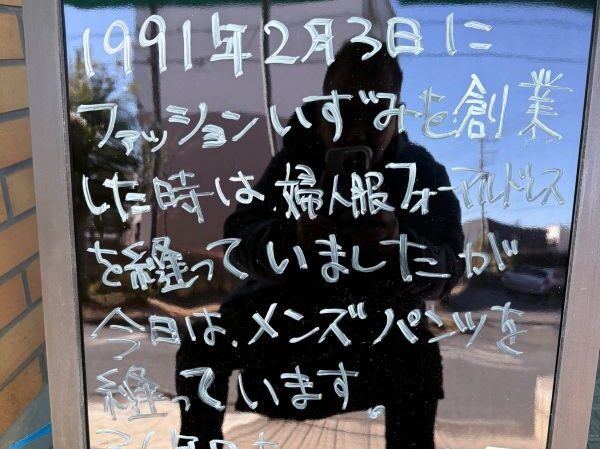 1991年2月3日に
ファッションいずみを創業
した時は、婦人服フォーマルドレス
を縫っていましたが
今日は、メンズパンツを
縫っています。